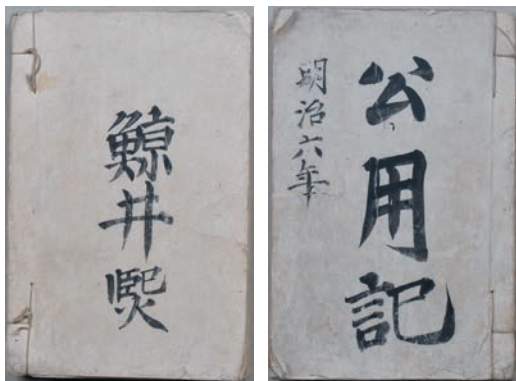 鯨井凞
公用記
明治六年